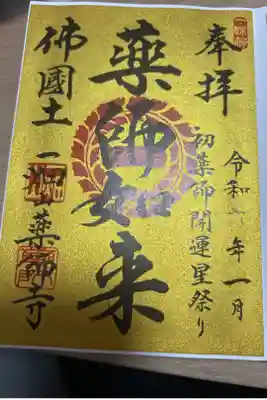 奉拝
令和年一月
初薬師開運星祭り
藥師如来
佛國土
一畑山薬師寺